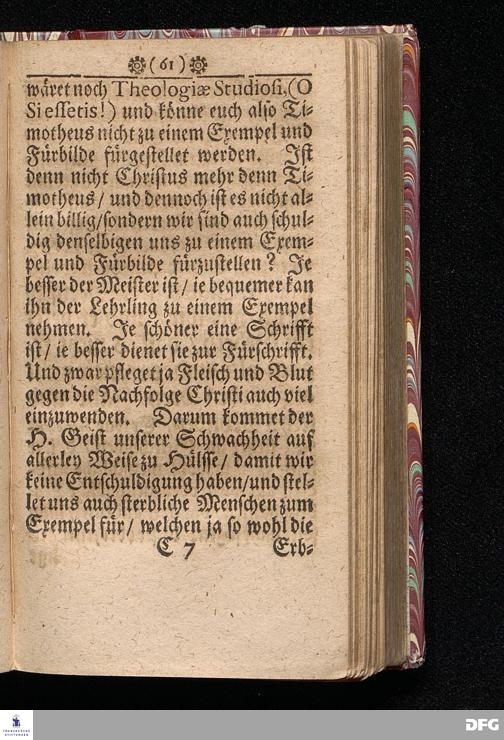 (61)
wäret noch Theologiæ Studiosi, (O
Si essetis!) und könne euch also Ti-
motheus nicht zu einem Exempel und
Fürbilde fürgestellet werden. Ist
denn nicht Christus mehr denn Ti-
motheus / und dennoch ist es nicht al-
lein billig / sondern wir sind auch schul-
dig denselbigen uns zu einem Exem-
pel und Fürbilde fürzustellen? Je
besser der Meister ist / ie bequemer kan
ihn der Lehrling zu einem Exempel
nehmen. Je schöner eine Schrifft
ist / ie besser dienet sie zur Fürschrifft.
Und zwar pfleget ja Fleisch und Blut
gegen die Nachfolge Christi auch viel
einzuwenden. Darum kommet der
H. Geist unserer Schwachheit auf
allerley Weise zu Hülffe / damit wir
keine Entschuldigung haben / und stel-
let uns auch sterbliche Menschen zum
Exempel für / welchen ja so wohl die
C 7 Erb-
FRANCKESCHE
STIFTUNGEN
DFG